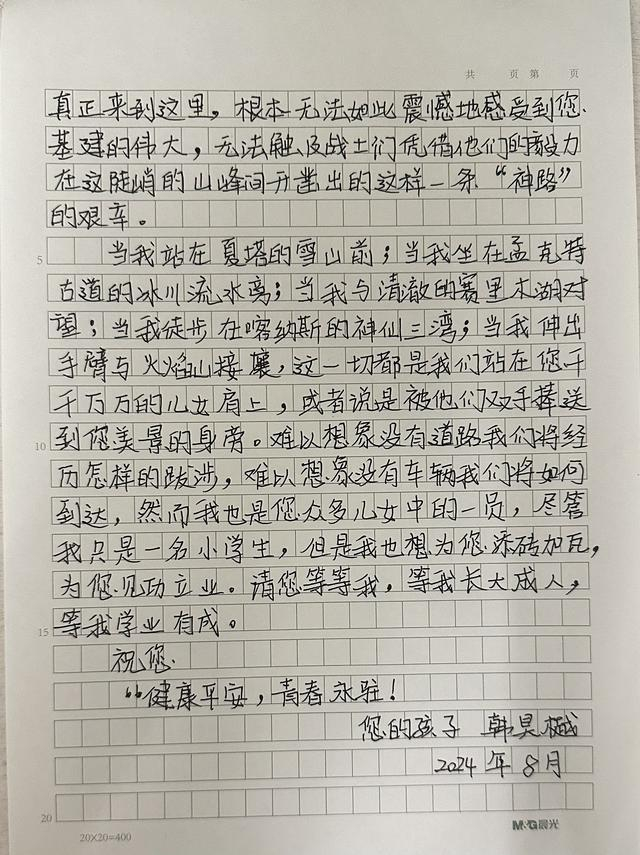 共 页 第 页
真正来到这里，根本无法如此震憾地感受到您
基建的伟大，无法触及战士们凭借他们的毅力
在这陡峭的山峰间开凿出的这样一条“神路”
的艰辛。
5 当我站在夏塔的雪山前；当我坐在孟克特
古道的冰川流水旁；当我与清澈的赛里木湖对
望；当我徒步在喀纳斯的神仙三湾；当我伸出
手臂与火焰山接壤，这一切都是我们站在您千
千万万的儿女肩上，或者说是被他们双手捧送
10 到您美景的身旁。难以想象没有道路我们将经
历怎样的跋涉，难以想象没有车辆我们将如何
到达，然而我也是您众多儿女中的一员，尽管
我只是一名小学生，但是我也想为您添砖加瓦，
为您见功立业。请您等等我，等我长大成人，
15 等我学业有成。
祝您
“健康平安，青春永驻！
您的孩子 韩昊樾
2024年8月
20
20×20=400
M&G晨光